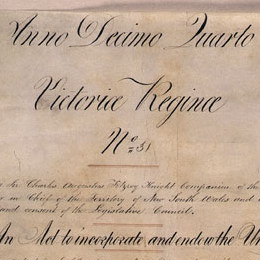 Anno Decimo Quarto
Victoriæ Reginæ
No 31
Sir Charles Augustus Fitzroy Knight Companion of the
in Chief of the Territory of New South Wales and
and consent of the Legislative Council.
An Act to incorporate and endow the Un